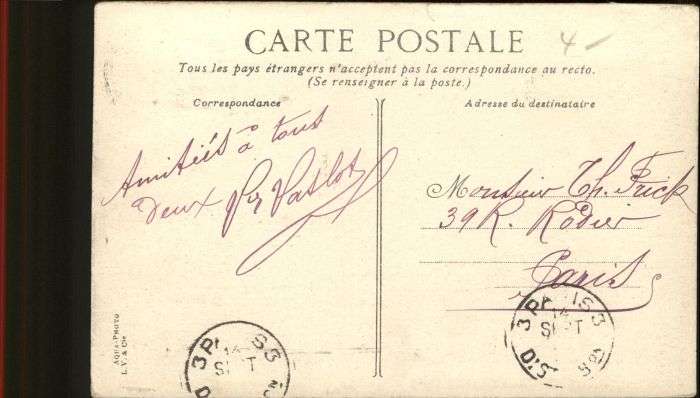 CARTE POSTALE
4 -
Tous les pays étrangers n'acceptent pas la correspondance au recto.
(Se renseigner à la poste.)
Correspondance
Amitiés à tous
deux
Adresse du destinataire
Monsieur Th. Frick
39 R. Rodier
Paris
AQUA-PHOTO
L. V. & Cie
3 P S 3
14
SEPT
D
3 PARIS 3
14
SEPT